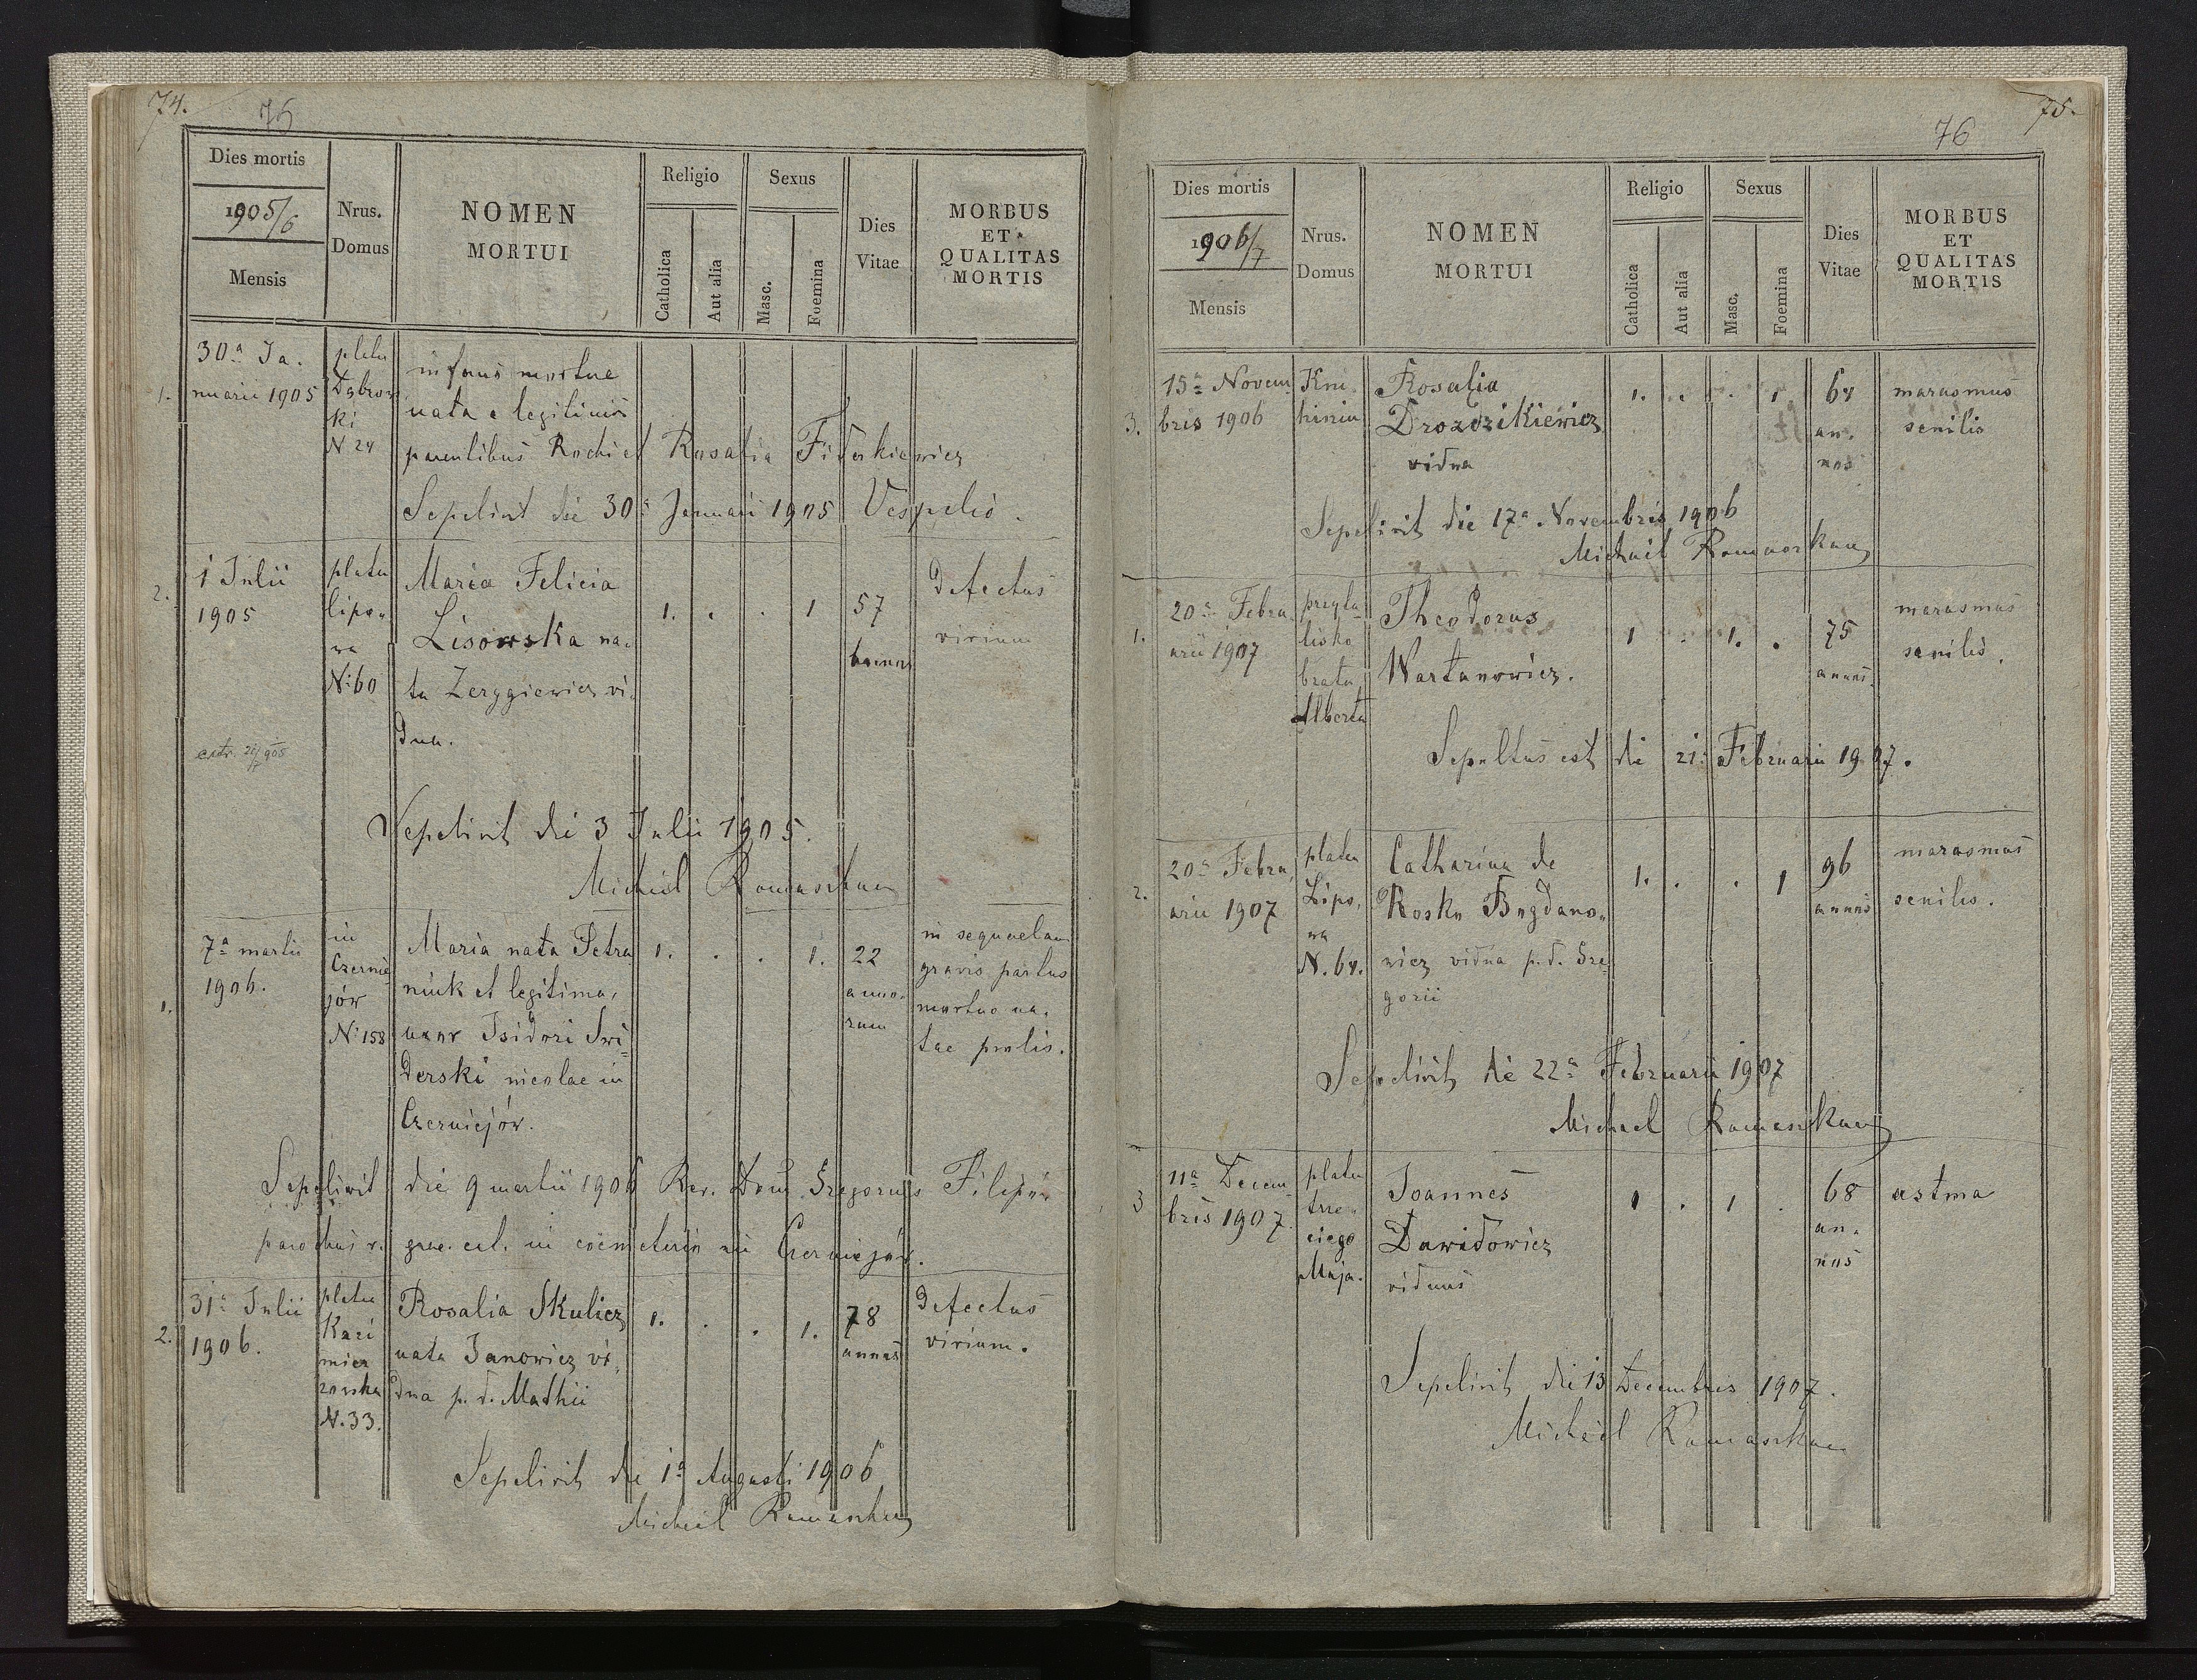 74.
75
Dies mortis
1905/6
Mensis
Nrus.
Domus
NOMEN
MORTUI
Religio
Catholica
Aut alia
Sexus
Masc.
Foemina
Dies
Vitae
MORBUS
ET
QUALITAS
MORTIS
1.
30a Ja.
nuarii 1905
platea
Dąbrow
ki
N 24
infans mortue
nata e legitimis
parentibus Rochi et Rosalia
Sepelivit die 30a Januarii 1905
2.
1 Julii
1905
platea
lipo-
wa
N: 60
Maria Felicia
Lisowska na-
ta Zerygiewicz vi-
dua.
1. . . 1
57
defectus
virium
extr.
Sepelivit die 3 Julii 1905.
Michael Romaszkan
1.
7a martii
1906.
in
Czernie
jów
N: 158
Maria nata Petra
niuk et legitima,
uxor Isidori Swi-
derski incolae in
Czerniejów.
1. . . 1.
22
anno-
rum
in sequelam
gravis partus
mortuo na-
tae prolis.
Sepelivit die 9 martii 1906 Rev. Dom. Gregorius
parochus r. graec. cat. in coemeterio in Czerniejów.
2.
31a Julii
1906.
platea
Kazi
mierz
zowska
N. 33.
Rosalia Skulicz
nata Janowicz vi-
dua p. d. Mathii
1. . . 1.
78
annos
defectus
virium.
Sepelivit die 1a Augusti 1906
Michael Romaszkan
75.
76
Dies mortis
1906/7
Mensis
Nrus.
Domus
NOMEN
MORTUI
Religio
Catholica
Aut alia
Sexus
Masc.
Foemina
Dies
Vitae
MORBUS
ET
QUALITAS
MORTIS
3.
15a Novem-
bris 1906
Kni
hinin
Rosalia
Drozdzikiewicz
vidua
1. . . 1
64
an-
nos
marasmus
senilis
Sepelivit die 17a Novembris 1906
Michael Romaszkan
1.
20a Febru-
arii 1907
przytu-
lisko
brata
Alberta
Theodorus
Wartanowicz.
1 . 1. .
75
annos.
marasmus
senilis.
Sepultus est die 21a Februarii 1907.
2.
20a Febru,
arii 1907
platea
Lipo,
wa
N. 64.
Catharina de
Rosko Bogdano-
wicz vidua p. d. Gre-
gorii
1. . . 1
96
annos
marasmus
senilis.
Sepelivit die 22a Februarii 1907
Michael Romaszkan
3
11a Decem-
bris 1907.
platea
trze-
ciego
Maja.
Joannes
Dawidowicz
viduus
1 . 1 .
68
an-
nos
astma
Sepelivit die 13 Decembris 1907.
Michael Romaszkan